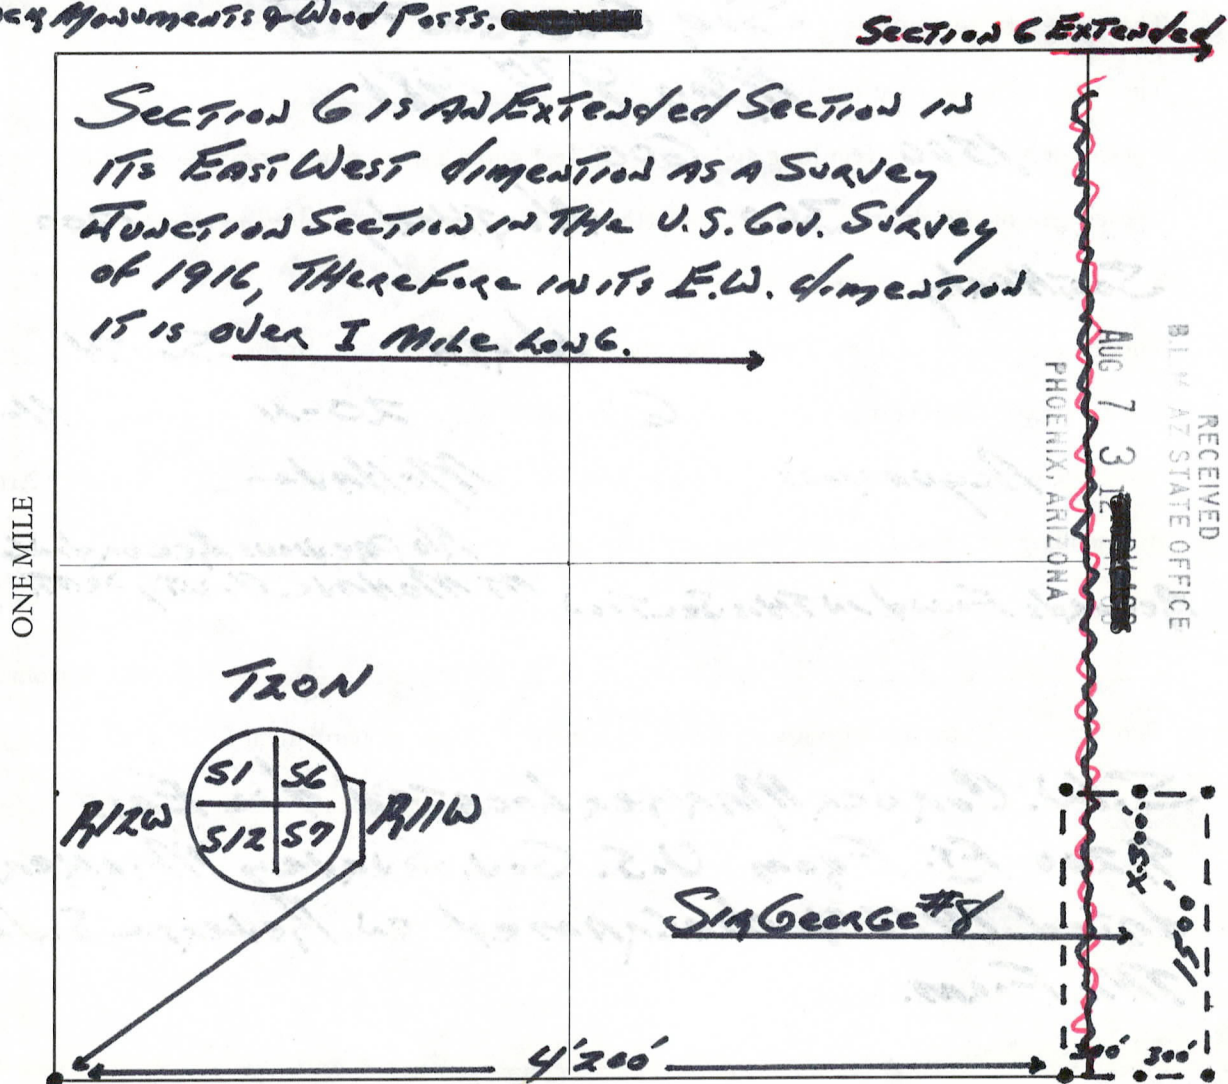 Monuments & Wood Posts.
Section 6 Extended
Section 6 is an Extended Section in
its East West dimention as a Survey
Junction Section in the U.S. Gov. Survey
of 1916, Therefore in its E.W. dimention
it is over 1 Mile Long.
RECEIVED
B.L.M. AZ STATE OFFICE
AUG 7 3
PHOENIX, ARIZONA
ONE MILE
T20N
S1 S6
R12W R11W
S12 S7
X300'
1500'
Sir George #8
4'200'
300' 300'